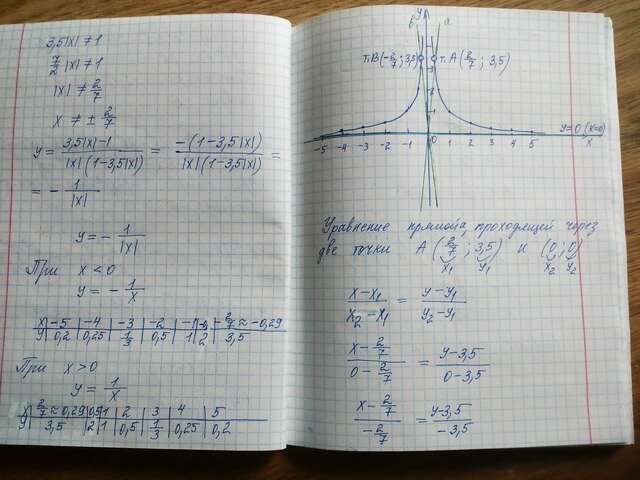 3,5|x| ≠ 1
7/2 |x| ≠ 1
|x| ≠ 2/7
x ≠ ± 2/7
y = (3,5|x|-1)/(|x|(1-3,5|x|)) = (-(1-3,5|x|))/(|x|(1-3,5|x|)) =
= - 1/|x|
y = - 1/|x|
При x < 0
y = - 1/x
x | -5 | -4 | -3 | -2 | -1 | | -2/7 ≈ -0,29
y | 0,2 | 0,25 | 1/3 | 0,5 | 1 | 2 | 3,5
При x > 0
y = 1/x
x | 2/7 ≈ 0,29 | 0,5 | 1 | 2 | 3 | 4 | 5
y | 3,5 | 2 | 1 | 0,5 | 1/3 | 0,25 | 0,2
в y a
т.В(-2/7; 3,5) т.А(2/7; 3,5)
y=0 (k=0)
-5 -4 -3 -2 -1 0 1 2 3 4 5 x
Уравнение прямой, проходящей через
две точки А (2/7; 3,5) и (0; 0)
x1 y1 x2 y2
(x-x1)/(x2-x1) = (y-y1)/(y2-y1)
(x-2/7)/(0-2/7) = (y-3,5)/(0-3,5)
(x-2/7)/(-2/7) = (y-3,5)/(-3,5)